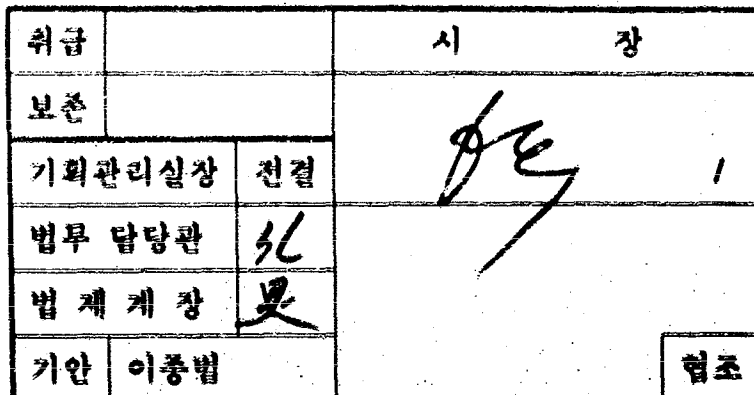 취급 시 장
보존
기획관리실장 전결
법무 담당관
법제계장
기안 이종법 협조